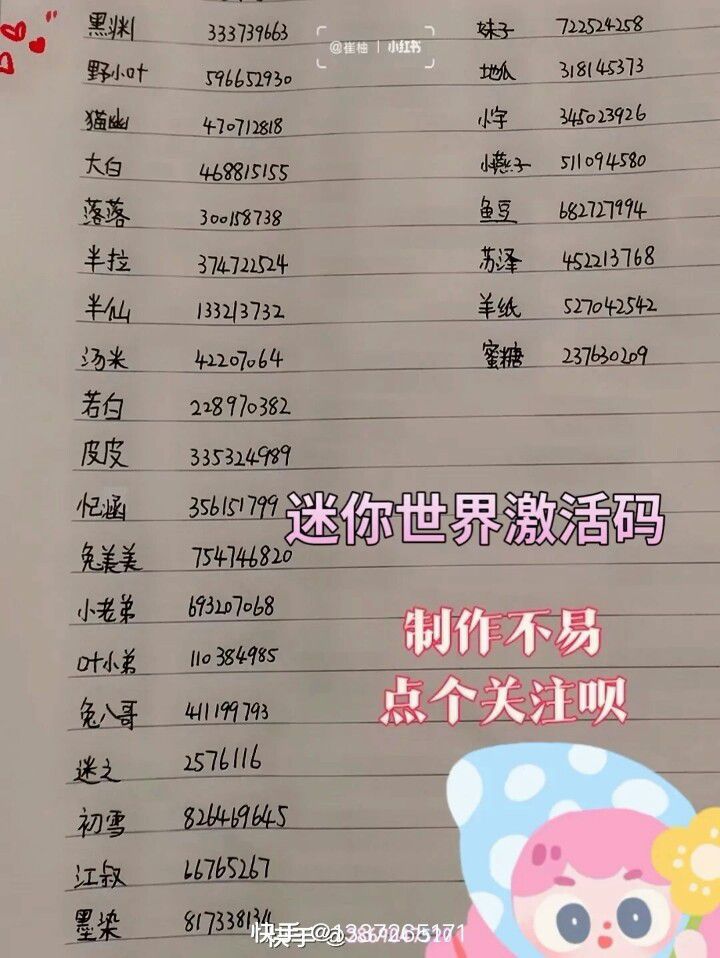 黑渊 333739663
野小叶 596652930
猫幽 470712818
大白 468815155
落落 300158738
半拉 374722524
半仙 133213732
汤米 42207064
若白 228970382
皮皮 335324989
忆涵 356151799
兔美美 754746820
小老弟 693207068
叶小弟 110384985
兔八哥 411199793
迷之 2576116
初雪 826469645
江叔 66765267
墨染 817338134
@崔柚 | 小红书
妹子 722524258
地瓜 318145373
小字 345023926
小燕子 511094580
鱼豆 682727994
苏泽 452213768
羊纸 527042542
蜜糖 237630209
迷你世界激活码
制作不易
点个关注呗
快手